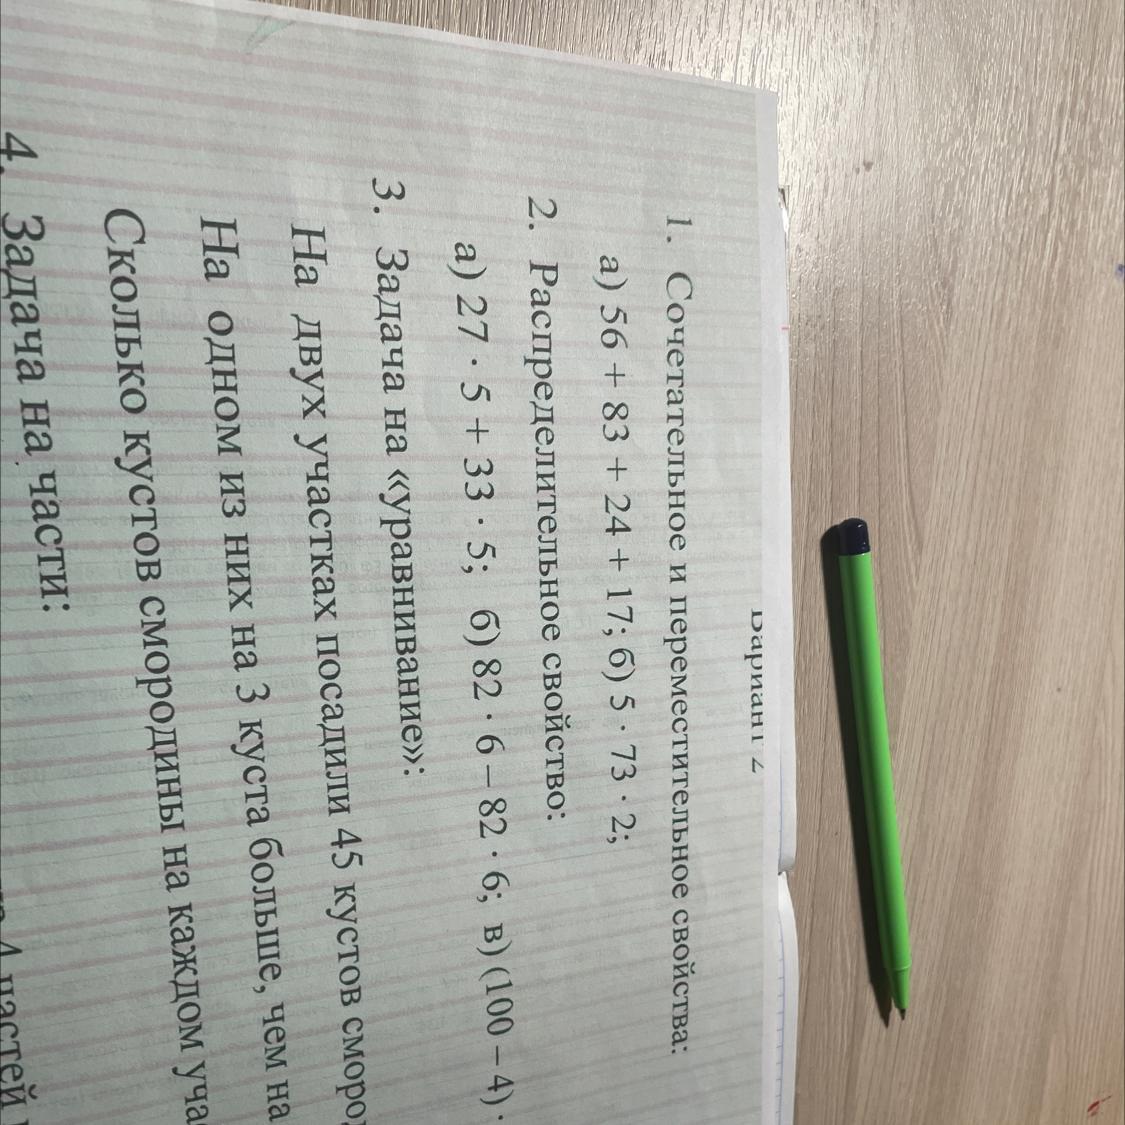 Вариант 2
1. Сочетательное и переместительное свойства:
а) 56 + 83 + 24 + 17; б) 5 · 73 · 2;
2. Распределительное свойство:
а) 27 · 5 + 33 · 5; б) 82 · 6 – 82 · 6; в) (100 – 4) ·
3. Задача на «уравнивание»:
На двух участках посадили 45 кустов сморо
На одном из них на 3 куста больше, чем на
Сколько кустов смородины на каждом уча
4. Задача на части:
4 частей